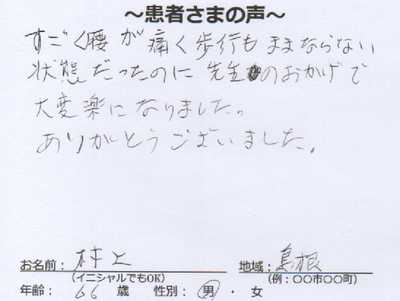 ～患者さまの声～
すごく腰が痛く歩行もままならない
状態だったのに先生のおかげで
大変楽になりました。
ありがとうございました。
お名前： 村上 地域： 島根
(イニシャルでもOK) (例：〇〇市〇〇町)
年齢： 66 歳 性別： 男 ・ 女